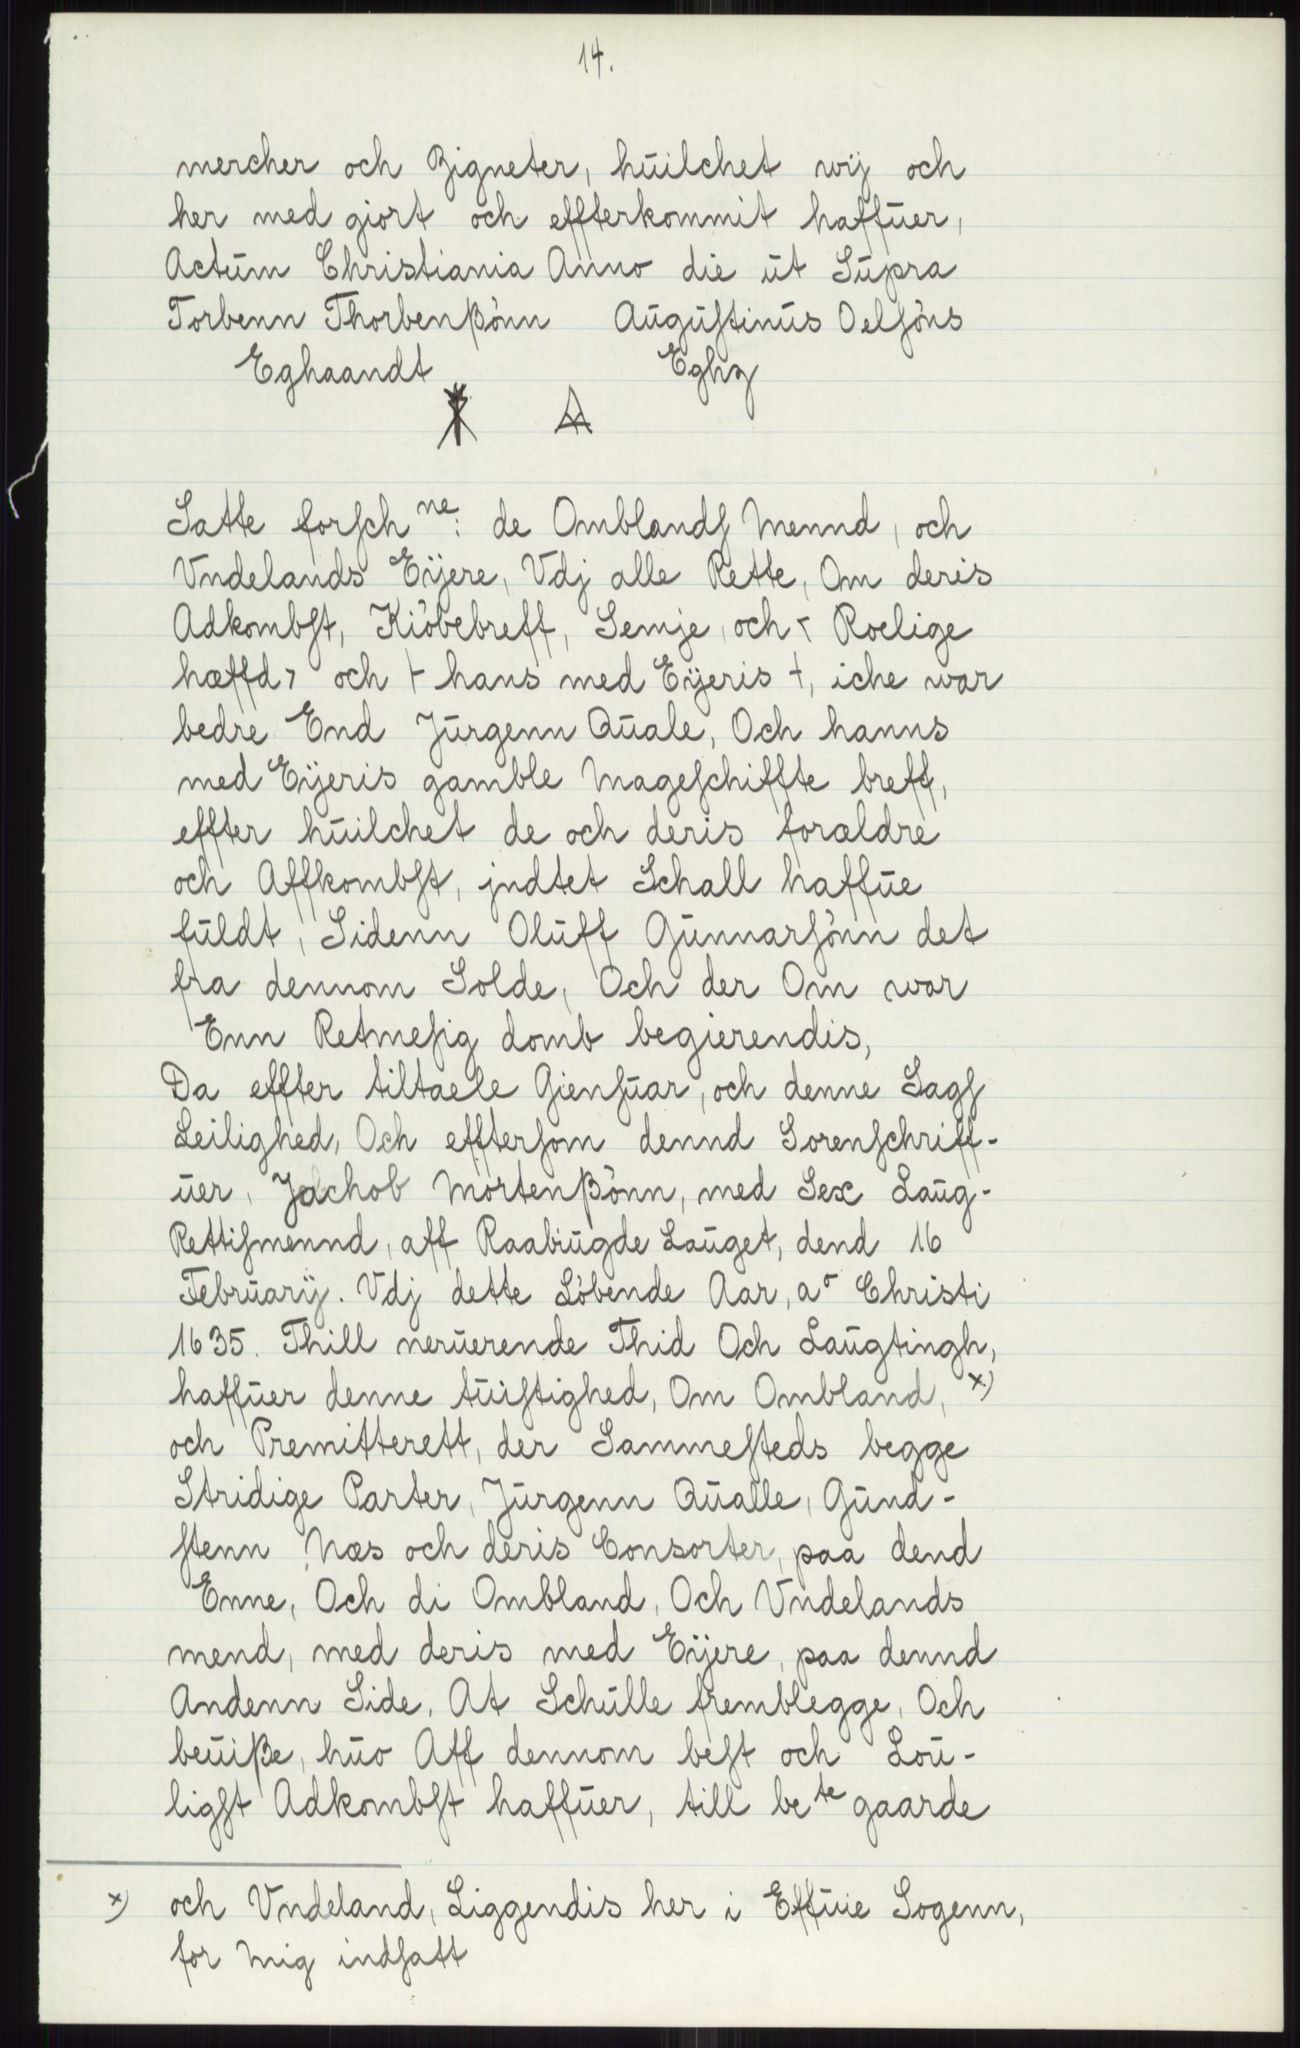 14.
mercher och Zigneter, huilchet wij och
her med giort och effterkommit haffuer,
Actum Christiania Anno die ut Supra
Torbenn Thorbenßönn Auguſtinus Oelſöns
Eghaandt Eghz
Satte forſch ne: de Omblandſ Mennd, och
Vndelands Eÿere, Vdj alle Rette, Om deris
Adkombſt, Kiöbebreff, Semje, och < Roelige
hæffd > och ⊢ hans med Eÿeris ⊣, iche war
bedre End Jürgenn Quale, Och hanns
med Eÿeris gamble Mageſchiffte breff,
effter huilchet de och deris forældre
och Affkombſt, jndtet Schall haffue
fuldt, Sidenn Oluff Gunnarſönn det
fra dennom Solde, Och der Om war
Enn Retmeſig domb begierendis,
Da effter tiltaele Gienſuar, och denne Sagſ
Leilighed, Och effterſom dennd Sorenſchriff-
uer, Jachob Mortenßönn, med Sex Laug-
Rettiſmennd, aff Raabiugde Lauget, dend 16
Februarÿ. Vdj dette Löbende Aar, ao Christi
1635. Thill neruerende Thid Och Laugtingh,
haffuer denne tuiſtighed, Om Ombland, x)
och Premitterett, der Sammeſteds begge
Stridige Parter, Jürgenn Qualle, Gund-
ſtenn Næs och deris Consorter, paa dend
Enne, Och di Ombland, Och Vndelands
mend, med deris med Eÿere, paa dennd
Andenn Side, At Schulle fremblegge, Och
beuiße, huo Aff dennom beſt och Lou-
ligſt Adkombſt haffuer, till be te gaarde
x) och Vndeland, Liggendis her i Effuie Sogenn,
for Mig indſatt